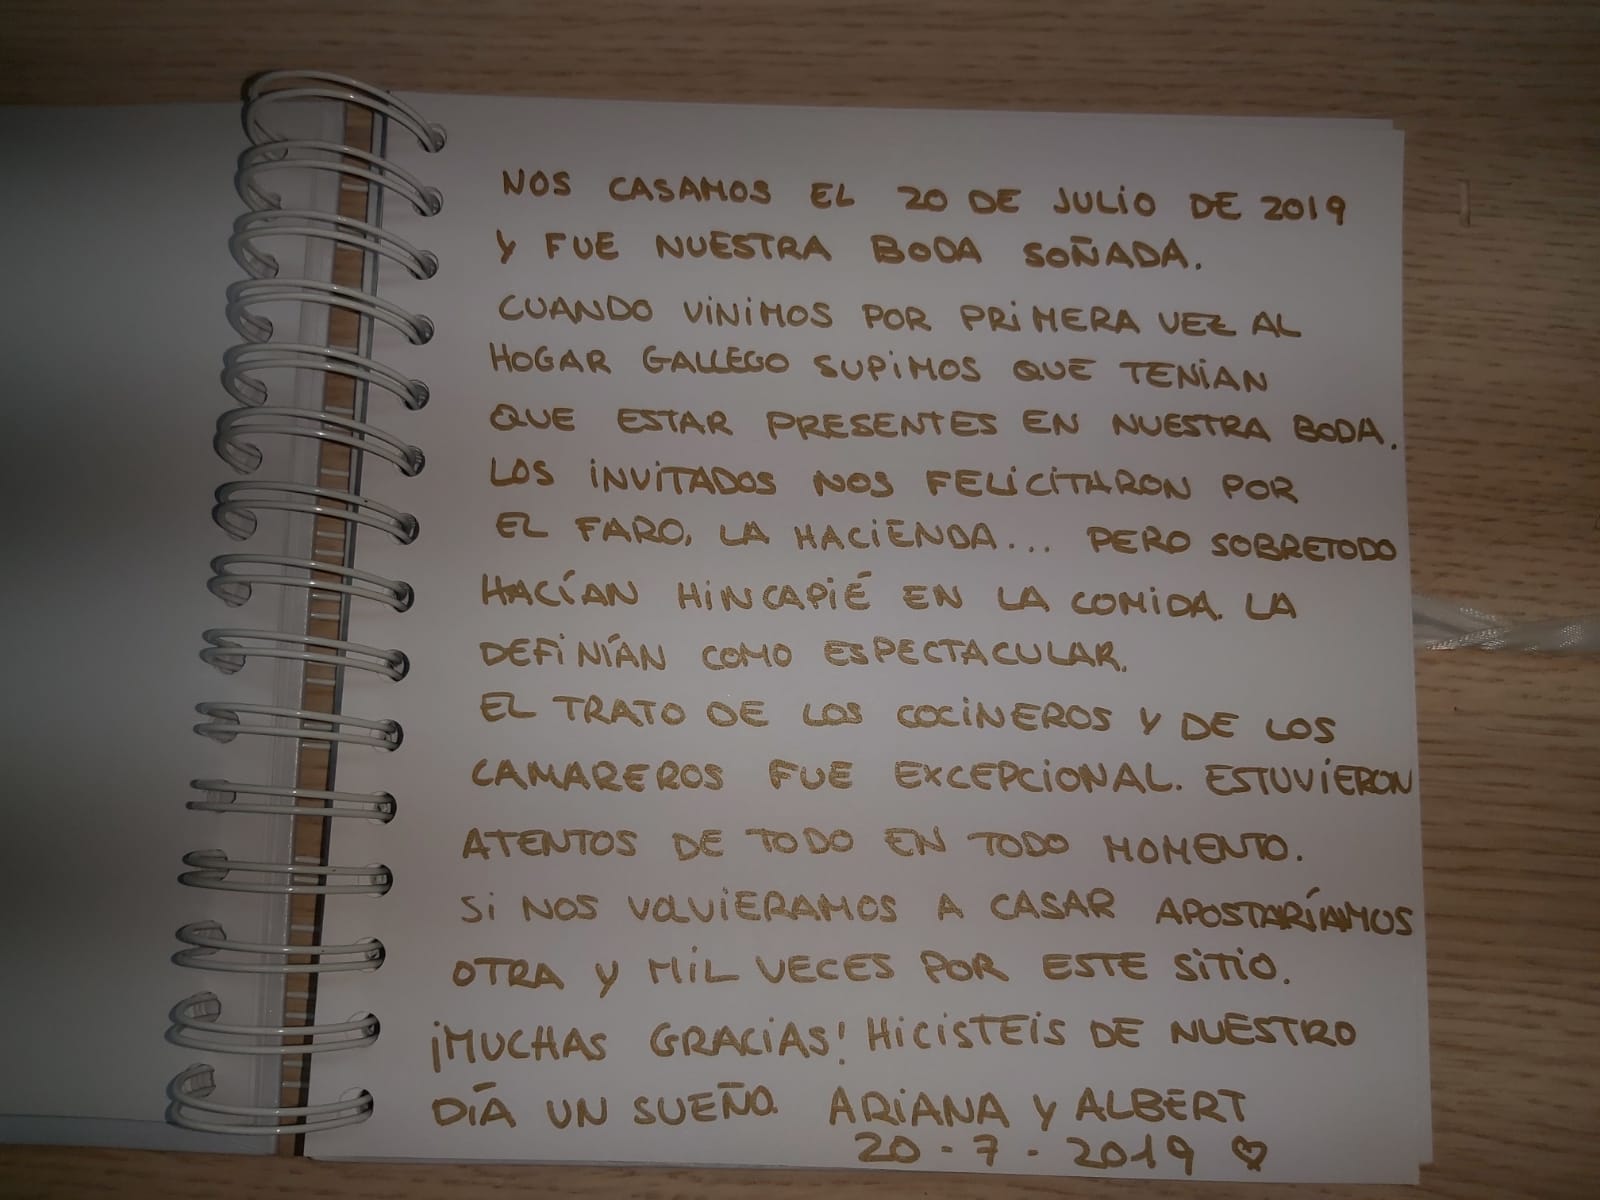 NOS CASAMOS EL 20 DE JULIO DE 2019
Y FUE NUESTRA BODA SOÑADA.
CUANDO VINIMOS POR PRIMERA VEZ AL
HOGAR GALLEGO SUPIMOS QUE TENIAN
QUE ESTAR PRESENTES EN NUESTRA BODA.
LOS INVITADOS NOS FELICITARON POR
EL FARO, LA HACIENDA... PERO SOBRETODO
HACÍAN HINCAPIÉ EN LA COMIDA. LA
DEFINÍAN COMO ESPECTACULAR.
EL TRATO DE LOS COCINEROS Y DE LOS
CAMAREROS FUE EXCEPCIONAL. ESTUVIERON
ATENTOS DE TODO EN TODO MOMENTO.
SI NOS VOLVIERAMOS A CASAR APOSTARÍAMOS
OTRA Y MIL VECES POR ESTE SITIO.
¡MUCHAS GRACIAS! HICISTEIS DE NUESTRO
DÍA UN SUEÑO. ARIANA Y ALBERT
20-7-2019 ♡